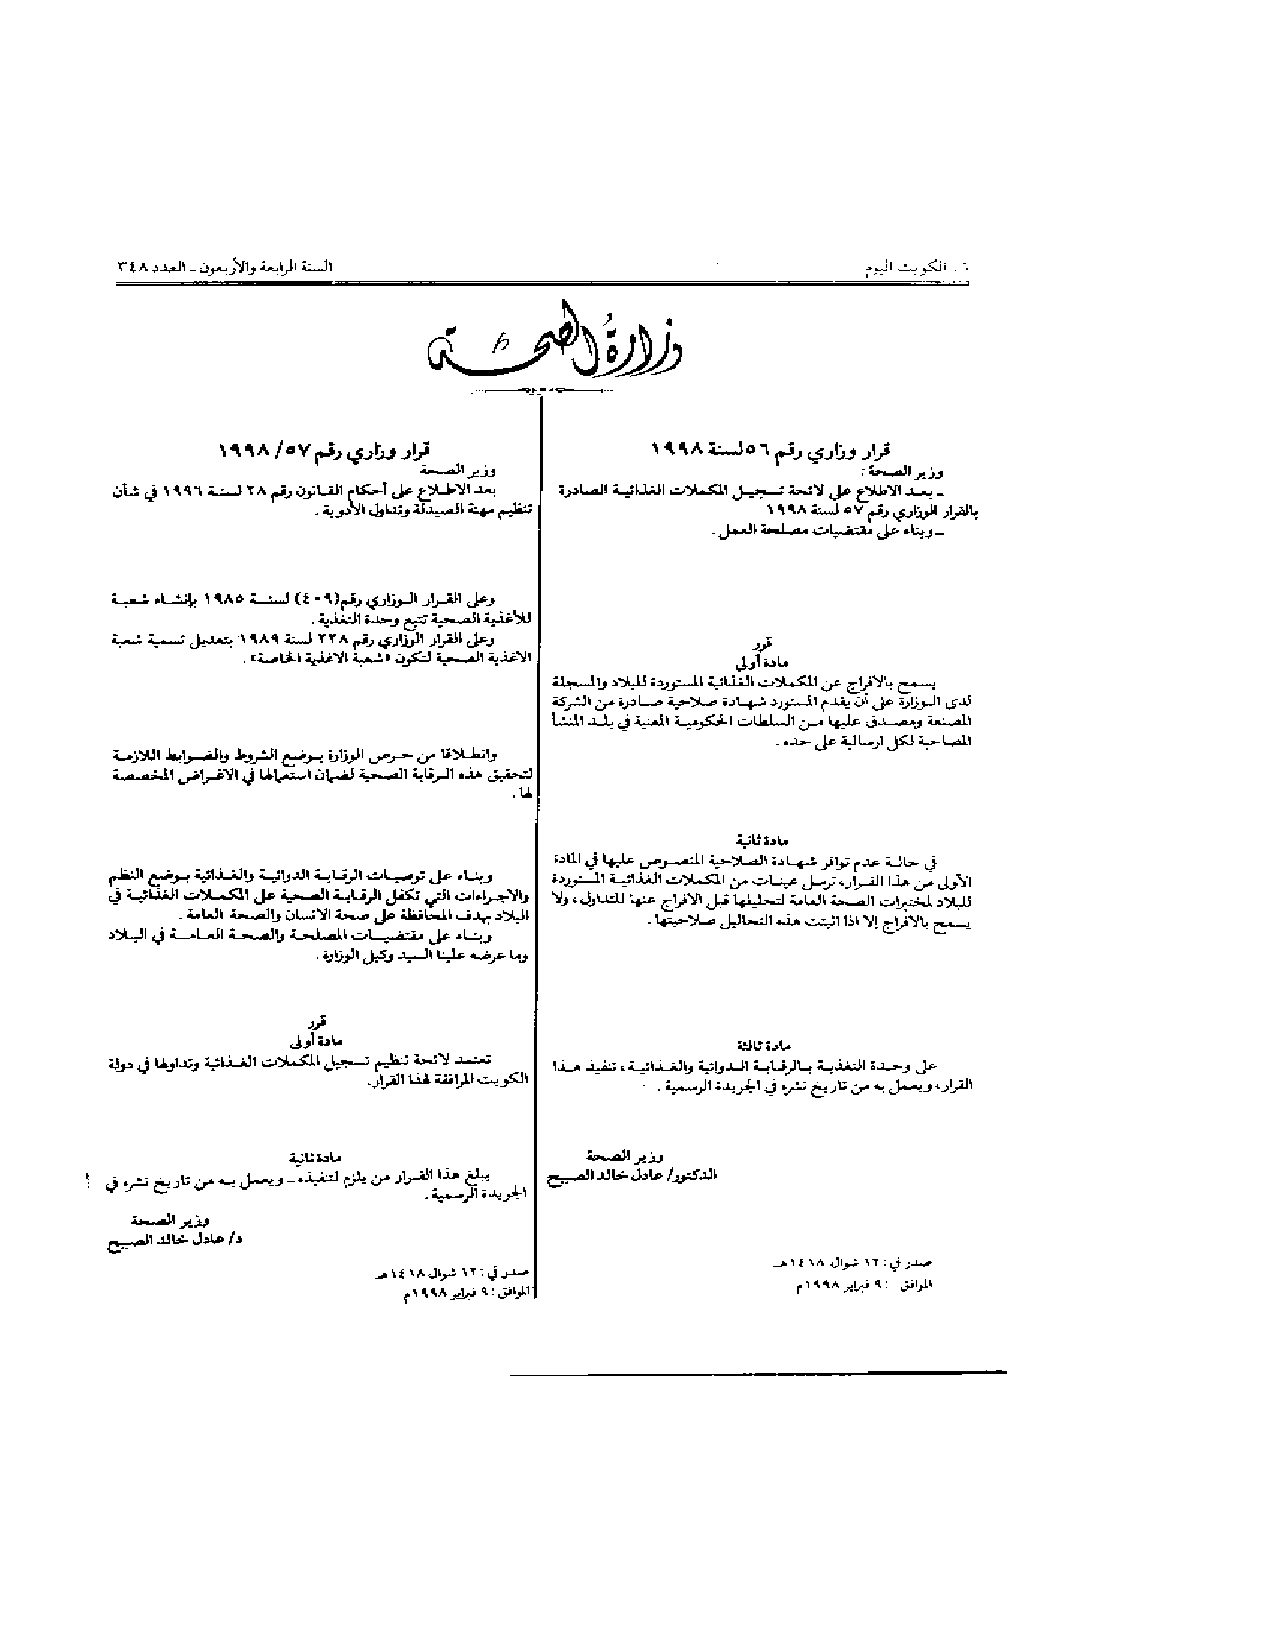 ٦. الكويت اليوم
السنة الرابعة والأربعون - العدد ٣٤٨
وزارة الصحة
قرار وزاري رقم ٥٦ لسنة ١٩٩٨
وزير الصحة :
- بعد الاطلاع على لائحة تسجيل المكملات الغذائية الصادرة
بالقرار الوزاري رقم ٥٧ لسنة ١٩٩٨
- وبناء على مقتضيات مصلحة العمل .
قرر
مادة أولى
يسمح بالافراج عن المكملات الغذائية المستوردة للبلاد والمسجلة
لدى الوزارة على أن يقدم المستورد شهادة صلاحية صادرة من الشركة
المصنعة ومصدق عليها من السلطات الحكومية المعنية في بلد المنشأ
المصاحبة لكل ارسالية على حده .
مادة ثانية
في حالة عدم توافر شهادة الصلاحية المنصوص عليها في المادة
الأولى من هذا القرار، ترسل عينات من المكملات الغذائية المستوردة
للبلاد لمختبرات الصحة العامة لتحليلها قبل الافراج عنها للتداول، ولا
يسمح بالافراج إلا اذا اثبتت هذه التحاليل صلاحيتها .
مادة ثالثة
على وحدة التغذية بالرقابة الدوائية والغذائية، تنفيذ هذا
القرار، ويعمل به من تاريخ نشره في الجريدة الرسمية .
وزير الصحة
الدكتور/ عادل خالد الصبيح
صدر في : ١٢ شوال ١٤١٨هـ
الموافق : ٩ فبراير ١٩٩٨م
قرار وزاري رقم ٥٧/ ١٩٩٨
وزير الصحة
بعد الاطلاع على أحكام القانون رقم ٢٨ لسنة ١٩٩٦ في شأن
تنظيم مهنة الصيدلة وتداول الأدوية .
وعلى القرار الوزاري رقم (٤٠٩) لسنة ١٩٨٥ بإنشاء شعبة
للأغذية الصحية تتبع وحدة التغذية .
وعلى القرار الوزاري رقم ٢٣٨ لسنة ١٩٨٩ بتعديل تسمية شعبة
الاغذية الصحية لتكون «شعبة الاغذية الخاصة» .
وانطلاقا من حرص الوزارة بوضع الشروط والضوابط اللازمة
لتحقيق هذه الرقابة الصحية لضمان استعمالها في الاغراض المخصصة
لها .
وبناء على توصيات الرقابة الدوائية والغذائية بوضع النظم
والاجراءات التي تكفل الرقابة الصحية على المكملات الغذائية في
البلاد بهدف المحافظة على صحة الانسان والصحة العامة .
وبناء على مقتضيات المصلحة والصحة العامة في البلاد
وما عرضه علينا السيد وكيل الوزارة .
قرر
مادة أولى
تعتمد لائحة تنظيم تسجيل المكملات الغذائية وتداولها في دولة
الكويت المرافقة لهذا القرار.
مادة ثانية
يبلغ هذا القرار من يلزم لتنفيذه - ويعمل به من تاريخ نشره في
الجريدة الرسمية .
وزير الصحة
د/ عادل خالد الصبيح
صدر في : ١٢ شوال ١٤١٨هـ
الموافق : ٩ فبراير ١٩٩٨م